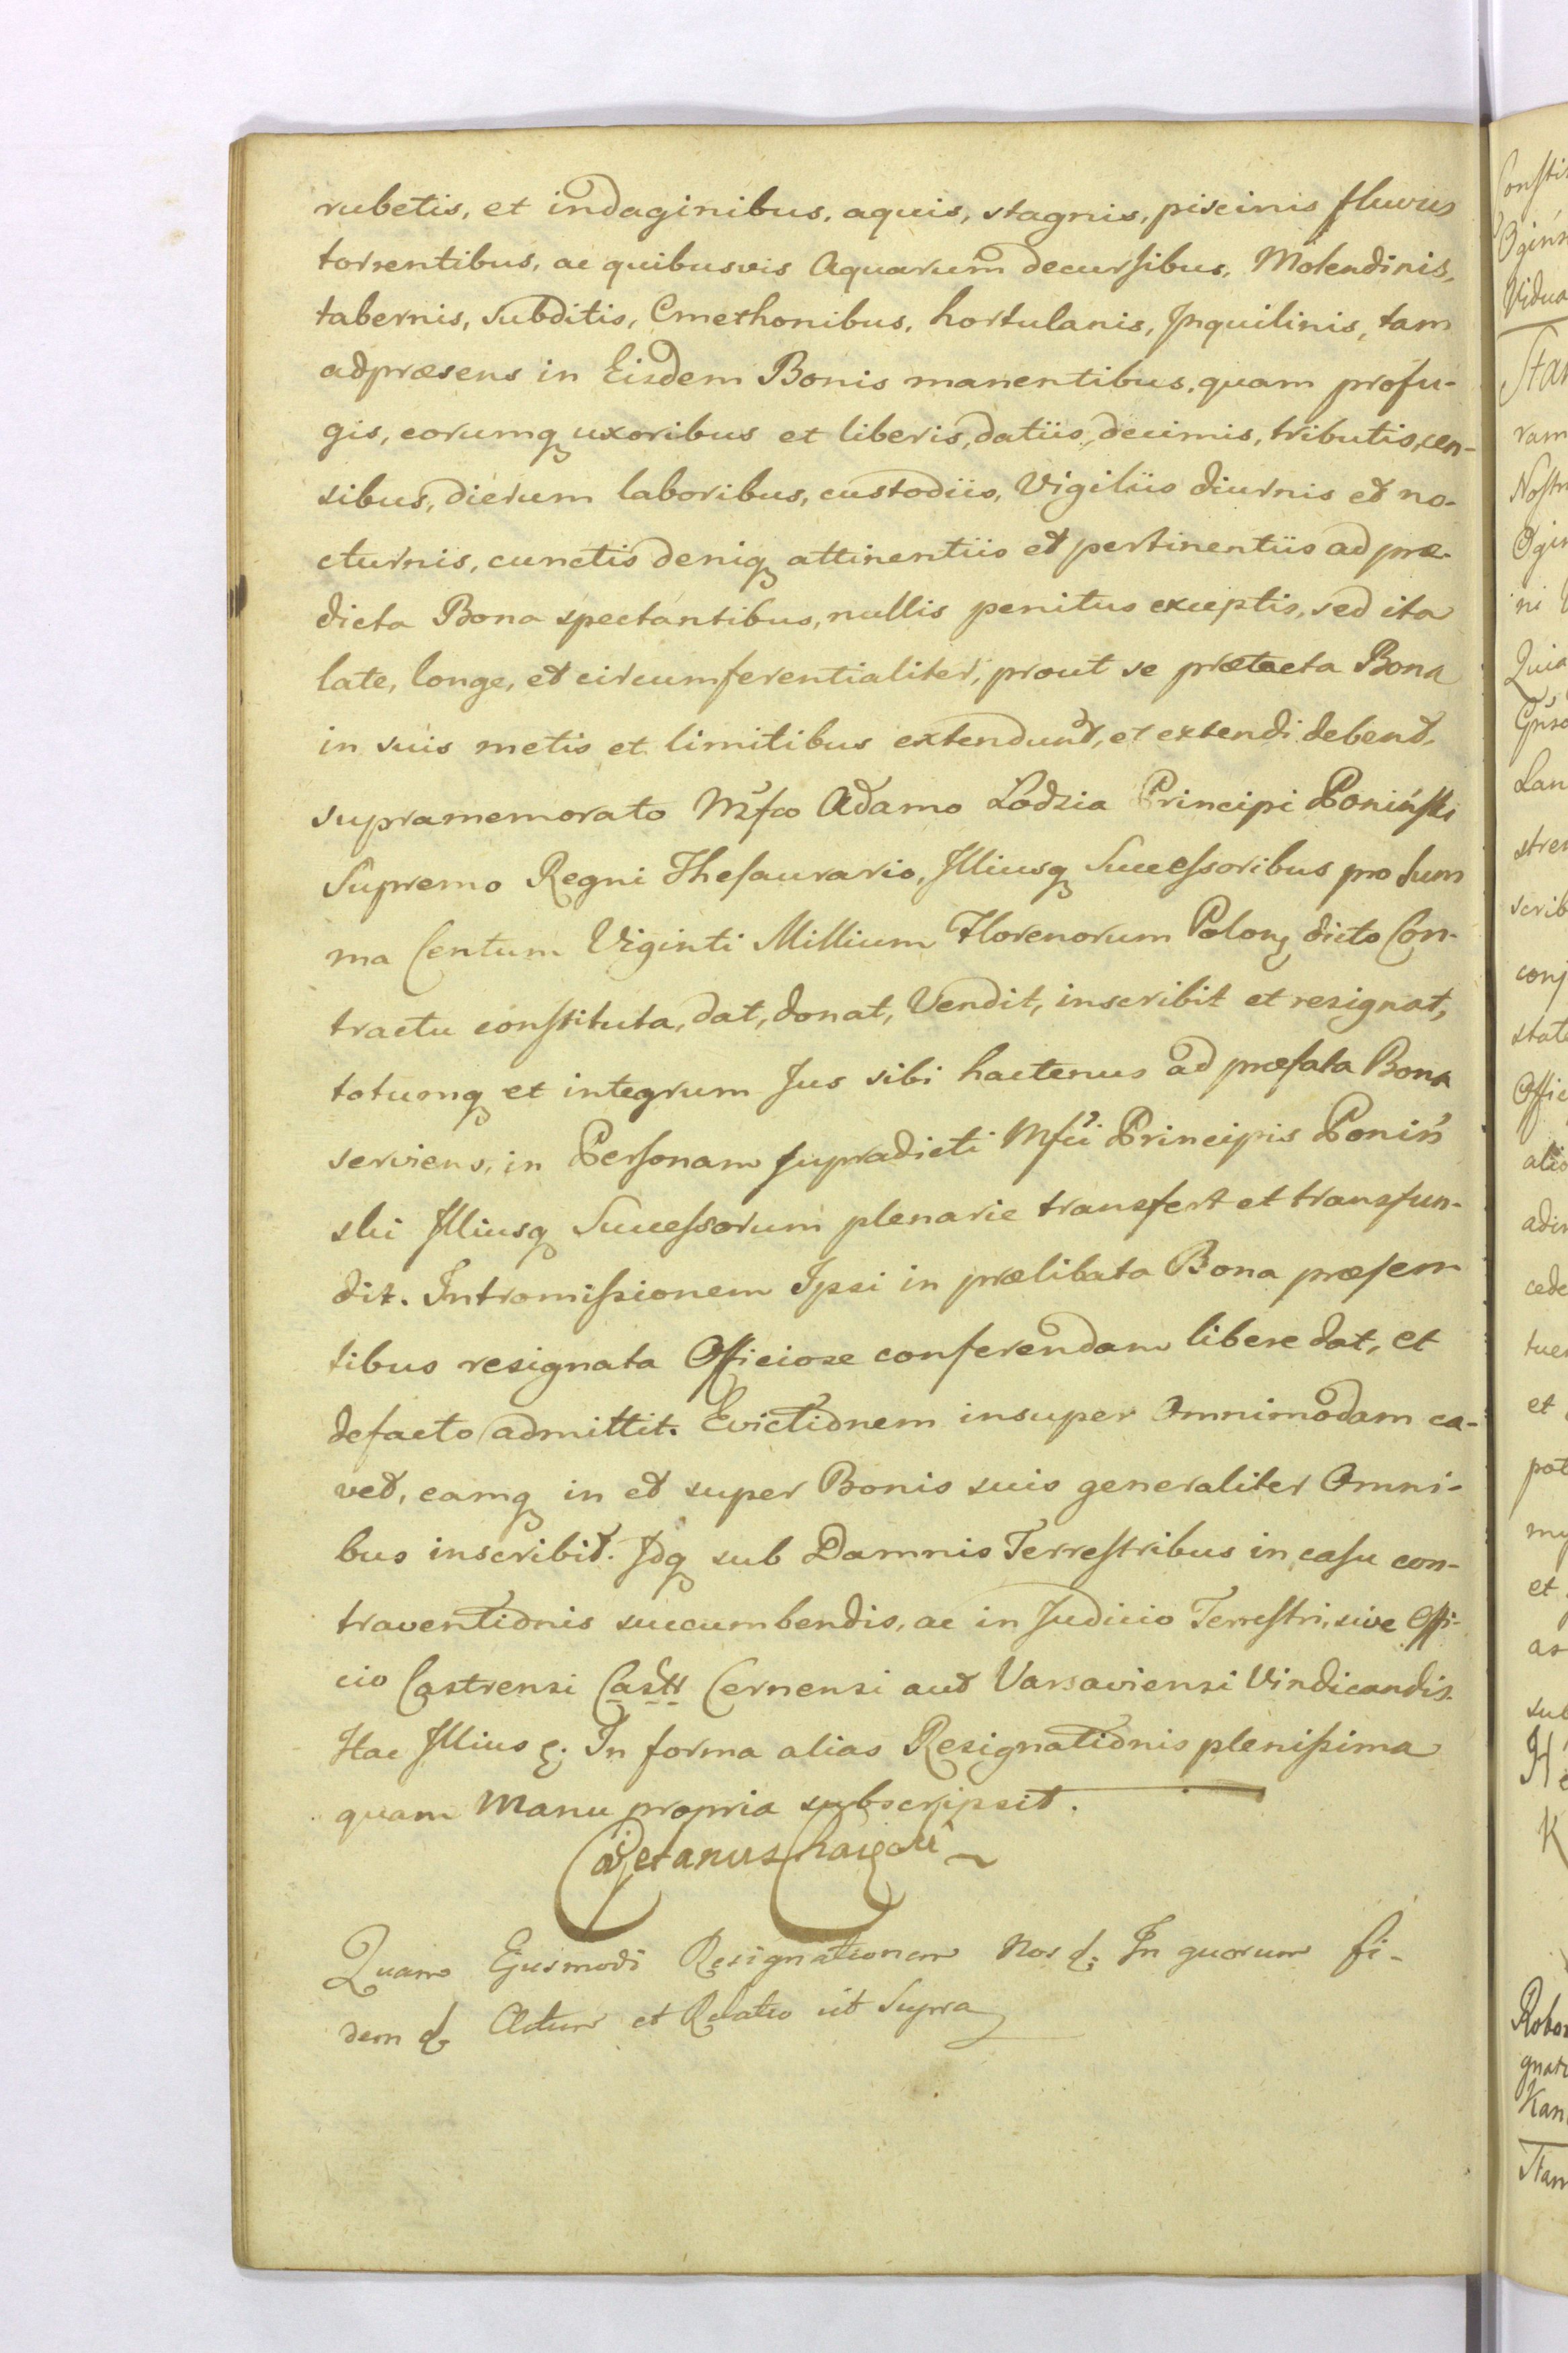 rubetis, et indaginibus, aquis, stagnis, piscinis fluviis
torrentibus, ac quibusvis Aquarum decursibus, Molendinis,
tabernis, subditis, Cmethonibus, hortulanis, Inquilinis, tam
adpræsens in Eisdem Bonis manentibus, quam profu-
gis, eorumq uxoribus et liberis, datiis, decimis, tributis, cen-
sibus, dierum laboribus, custodiis, Vigiliis diurnis et no-
cturnis, cunctis deniq attinentiis et pertinentiis ad præ-
dicta Bona spectantibus, nullis penitus exceptis, sed ita
late, longe, et circumferentialiter, prout se prætacta Bona
in suis metis et limitibus extendunt, et extendi debent,
supramemorato Mfco Adamo Lodzia Principi Poniński
Supremo Regni Thesaurario, Illiusq Successoribus pro Sum
ma Centum Viginti Millium Florenorum Polon dicto Con-
tractu constituta, dat, donat, Vendit, inscribit et resignat,
totumq et integrum Jus sibi hactenus ad præfata Bona
serviens, in Personam supradicti Mfci Principis Poniń
ski Illiusq Successorum plenarie transfert et transfun-
dit. Intromissionem Ipsi in prælibata Bona præsen
tibus resignata Officiose conferendam libere dat, et
defacto admittit. Evictionem insuper Omnimodam ca-
vet, eamq in et super Bonis suis generaliter Omni-
bus inscribit. Idq sub Damnis Terrestribus in casu con-
traventionis succumbendis, ac in Judicio Terrestri, sive Offi-
cio Castrensi Castr Cernensi aut Varsaviensi Vindicandis.
Hac Illius &. In forma alias Resignationis plenissima
quam Manu propria subscripsit.
Cajetanus
Quam Ejusmodi Resignationem Nos &. In quorum fi-
dem & Actum et Relatio ut Supra